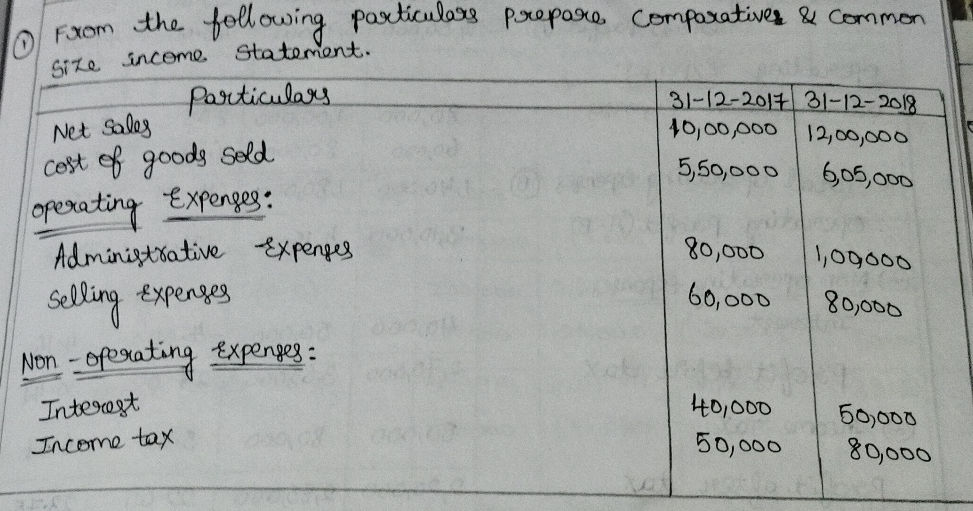 ① From the following particulars prepare comparatives & common
size income statement.
Particulars 31-12-2017 31-12-2018
Net Sales 10,00,000 12,00,000
cost of goods sold 5,50,000 6,05,000
operating Expenses:
Administrative Expenses 80,000 1,00,000
Selling Expenses 60,000 80,000
Non-operating Expenses:
Interest 40,000 50,000
Income tax 50,000 80,000